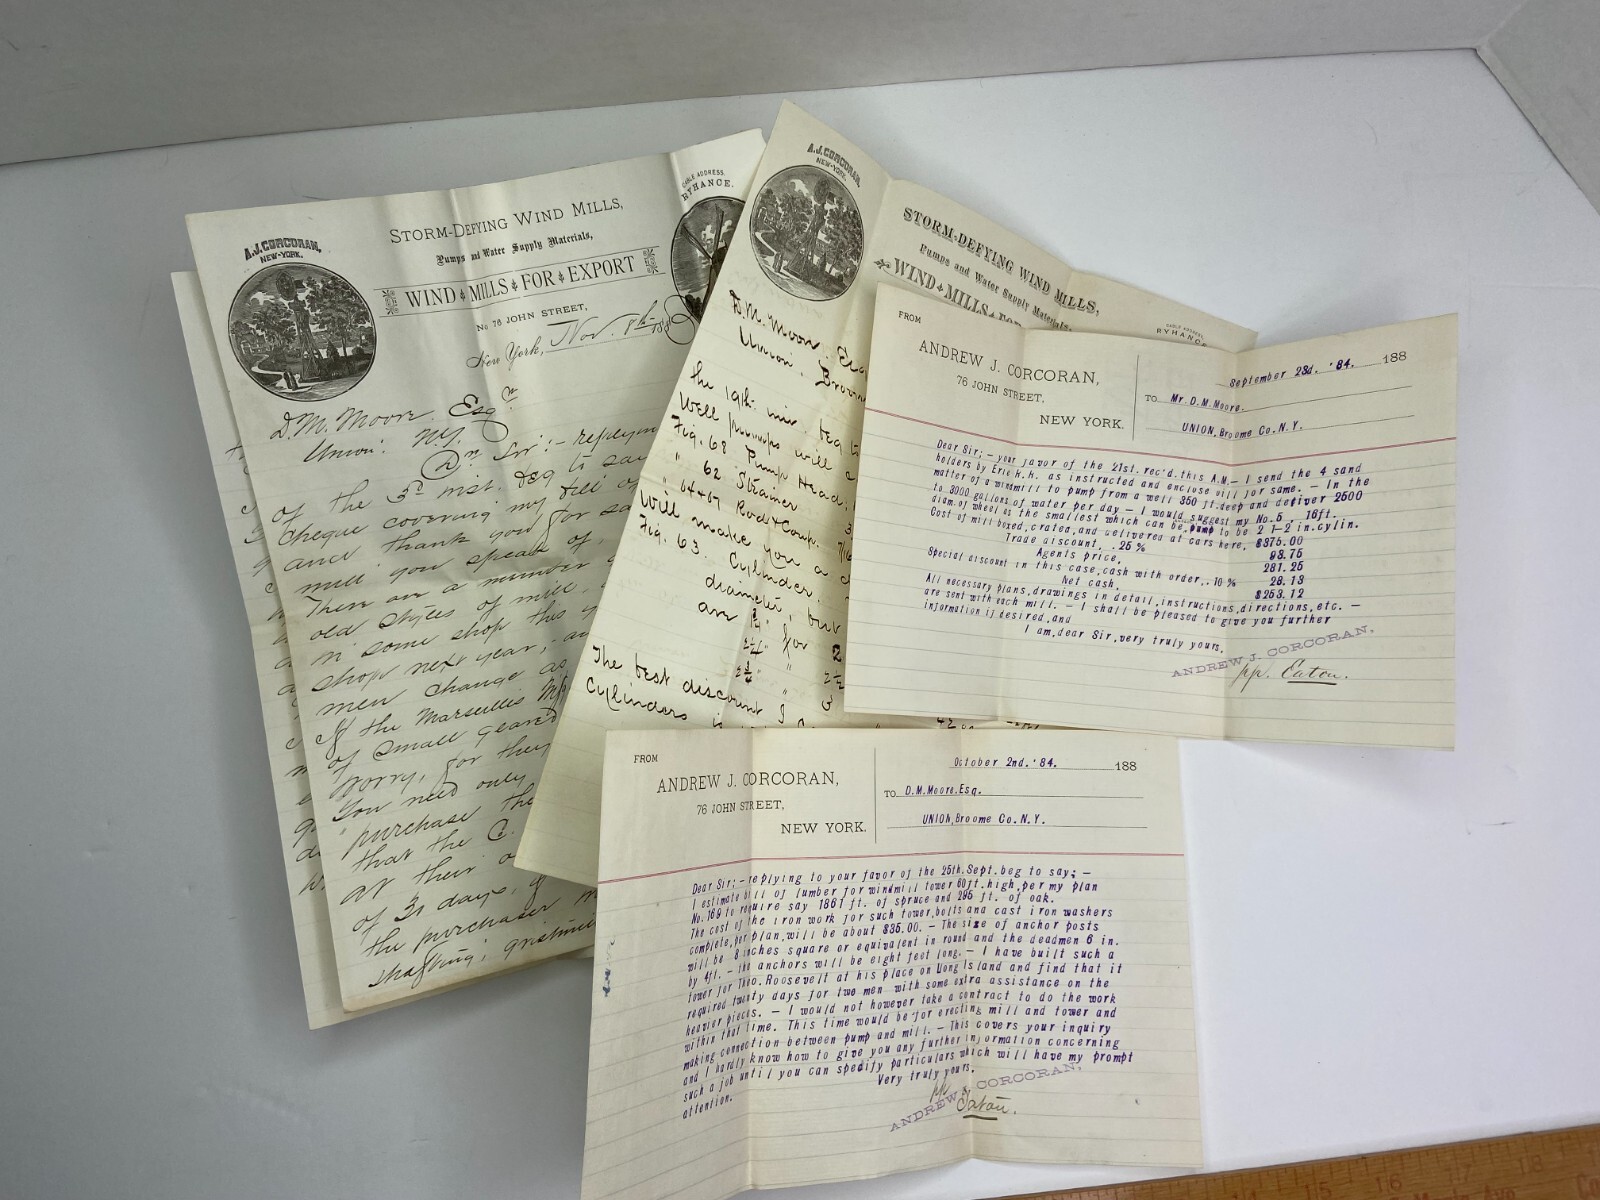 A.J. CORCORAN,
NEW-YORK.
STORM-DEFYING WIND MILLS,
Pumps and Water Supply Materials,
WIND MILLS FOR EXPORT
No 76 JOHN STREET,
New York, Nov. 8th 188
CABLE ADDRESS.
RYHANCE.
D.M. Moore. Esqr
Union. N.Y.
Dr Sir:- replying
of the 3d inst. beg to say
cheque covering my bill of
and thank you for sa
mill you speak of.
There are a number
old styles of mill,
in some shop this y
shop next year, an
men change as
If the Marseilles Mfg
of small geared
worry, for they
You need only
purchase the
that the C.
at their o
of 30 days,
the purchaser
shafting, gristmill
A.J. CORCORAN,
NEW-YORK.
STORM-DEFYING WIND MILLS,
Pumps and Water Supply Materials,
WIND MILLS FOR
CABLE ADDRESS
RYHANCE.
D.M. Moore. Esq
Union. Broome
the 19th inst. beg to
Well pumps will
Fig. 68 Pump Head.
" 62 Strainer
" 64+67 Rod+Coup. 7/16
Will make you a
Fig. 63. Cylinder.
diameter, but
are 1 3/4" for 2
2 1/4" " 2 1/2
2 3/4" " 3
The best discount I
Cylinders is
FROM
ANDREW J. CORCORAN,
76 JOHN STREET,
NEW YORK.
September 23d. '84. 188
TO Mr. D.M. Moore.
UNION, Broome Co. N.Y.
Dear Sir; - your favor of the 21st. rec'd. this A.M. - I send the 4 sand
holders by Erie R.R. as instructed and enclose bill for same. - In the
matter of a windmill to pump from a well 350 ft. deep and deliver 2500
to 3000 gallons of water per day - I would suggest my No. 5, 16ft.
diam. of wheel as the smallest which can be, pump to be 2 1-2 in. cylin.
Cost of mill boxed, crated, and delivered at cars here, $375.00
Trade discount, . 25 % 93.75
Agents price, 281.25
Special discount in this case, cash with order, . 10 % 28.13
Net cash, $253.12
All necessary plans, drawings in detail, instructions, directions, etc. -
are sent with each mill. - I shall be pleased to give you further
information if desired, and
I am, dear Sir, very truly yours,
ANDREW J. CORCORAN,
pp. Eaton.
FROM
ANDREW J. CORCORAN,
76 JOHN STREET,
NEW YORK.
October 2nd. '84. 188
TO D.M. Moore. Esq.
UNION, Broome Co. N.Y.
Dear Sir; - replying to your favor of the 25th. Sept. beg to say; -
I estimate bill of lumber for windmill tower 60 ft. high, per my plan
No. 169 to require say 1861 ft. of spruce and 295 ft. of oak.
The cost of the iron work for such tower, bolts and cast iron washers
complete, per plan, will be about $35.00. - The size of anchor posts
will be 8 inches square or equivalent in round and the deadmen 6 in.
by 4ft. - the anchors will be eight feet long. - I have built such a
tower for Theo. Roosevelt at his place on Long Island and find that it
required twenty days for two men with some extra assistance on the
heavier pieces. - I would not however take a contract to do the work
within that time. This time would be for erecting mill and tower and
making connection between pump and mill. - This covers your inquiry
and I hardly know how to give you any further information concerning
such a job until you can specify particulars which will have my prompt
attention.
Very truly yours,
ANDREW J. CORCORAN,
pp
Eaton.
15 16 17 18